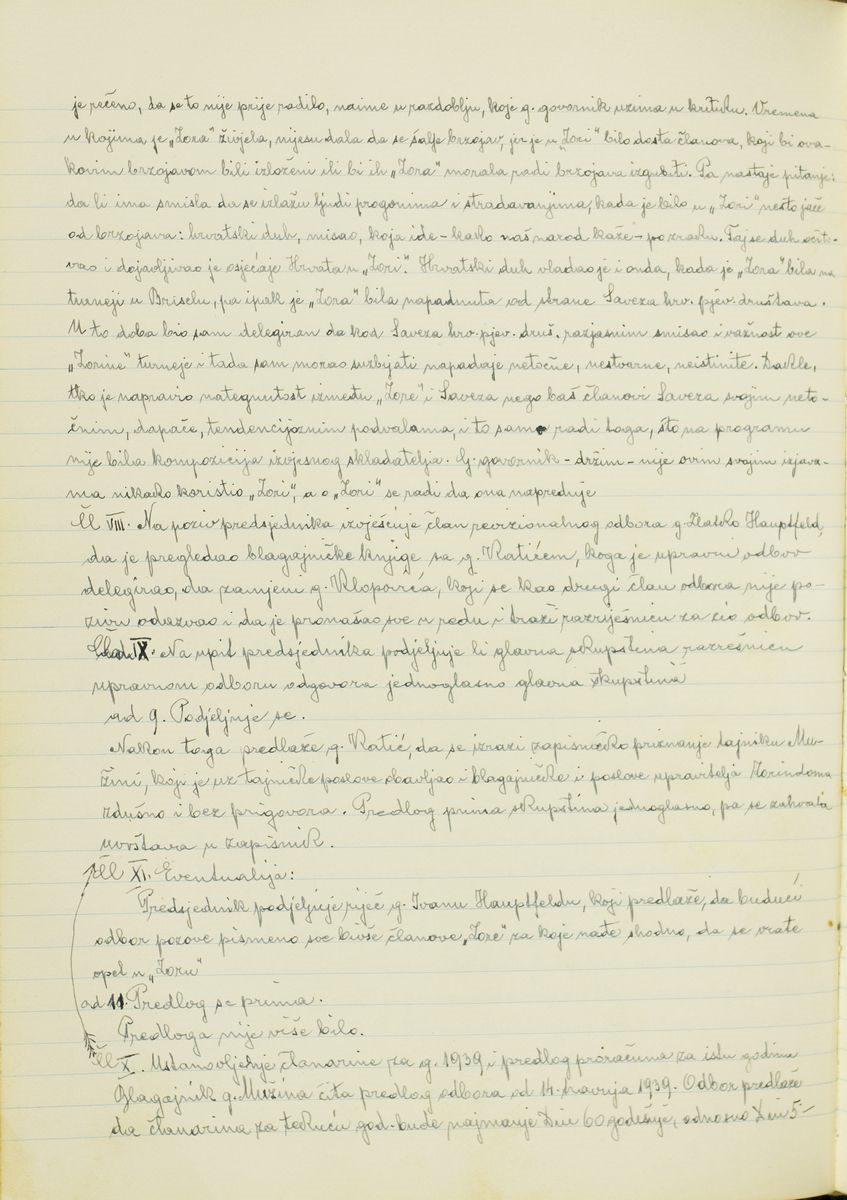 je rečeno, da se to nije prije radilo, naime u razdoblju, koje g. govornik uzima u kritiku. Vremena
u kojima je „Zora" živjela, nijesu dala da se šalje brzojav, jer je u „Zori" bilo dosta članova, koji bi ova-
kovim brzojavom bili izloženi ili bi ih „Zora" morala radi brzojava izgubiti. Pa nastaje pitanje:
da li ima smisla da se izlažu ljudi progonima i stradavanjima, kada je bilo u „Zori" nešto jače
od brzojava: hrvatski duh, misao, koja ide - kako naš narod kaže - po zraku. Taj se duh očito-
vao i dojavljivao je osjećaje Hrvata u „Zori". Hrvatski duh vladao je i onda, kada je „Zora" bila na
turneji u Briselu, pa ipak je „Zora" bila napadnuta od strane Saveza hrv. pjev. društava.
U to doba bio sam delegiran da kod Saveza hrv. pjev. druš. razjasnim smisao i važnost ove
„Zorine" turneje i tada sam morao suzbijati napadaje netočne, nestvarne, neistinite. Dakle,
tko je napravio nategnutost između „Zore" i Saveza nego baš članovi Saveza svojim neto-
čnim, dapače, tendencijoznim podvalama, i to samo radi toga, što na programu
nije bila kompozicija izvjesnog skladatelja. G. govornik - držim - nije ovim svojim izjava-
ma nikako koristio „Zori", a o „Zori" se radi da ona napreduje
Čl VIII. Na poziv predsjednika izvješćuje član revizionalnog odbora g. Zlatko Hauptfeld,
da je pregledao blagajničke knjige sa g. Ratićem, koga je upravni odbor
delegirao, da zamjeni g. Klopovića, koji se kao drugi član odbora nije po-
zivu odazvao i da je pronašao sve u redu i traži razriješnicu za cio odbor.
IX. Na upit predsjednika podjeljuje li glavna skupština razrešnicu
upravnom odboru odgovora jednoglasno glavna skupština
ad 9. Podjeljuje se.
Nakon toga predlaže g. Ratić, da se izrazi zapisničko priznanje tajniku Mu-
žini, koji je uz tajničke poslove obavljao i blagajničke i poslove upravitelja Zorindoma
zdušno i bez prigovora. Predlog prima skupština jednoglasno, pa se zahvala
uvrštava u zapisnik.
Čl XI. Eventualija:
Predsjednik podjeljuje riječ g. Ivanu Hauptfeldu, koji predlaže, da budući
odbor pozove pismeno sve bivše članove „Zore" za koje nađe shodno, da se vrate
opet u „Zoru"
ad 11. Predlog se prima.
Predloga nije više bilo.
Čl X. Ustanovljenje članarine za g. 1939. i predlog proračuna za istu godinu
Blagajnik g. Mužina čita predlog odbora od 14. travnja 1939. Odbor predlaže
da članarina za tekuću god. bude najmanje Din 60 godišnje, odnosno Din 5-